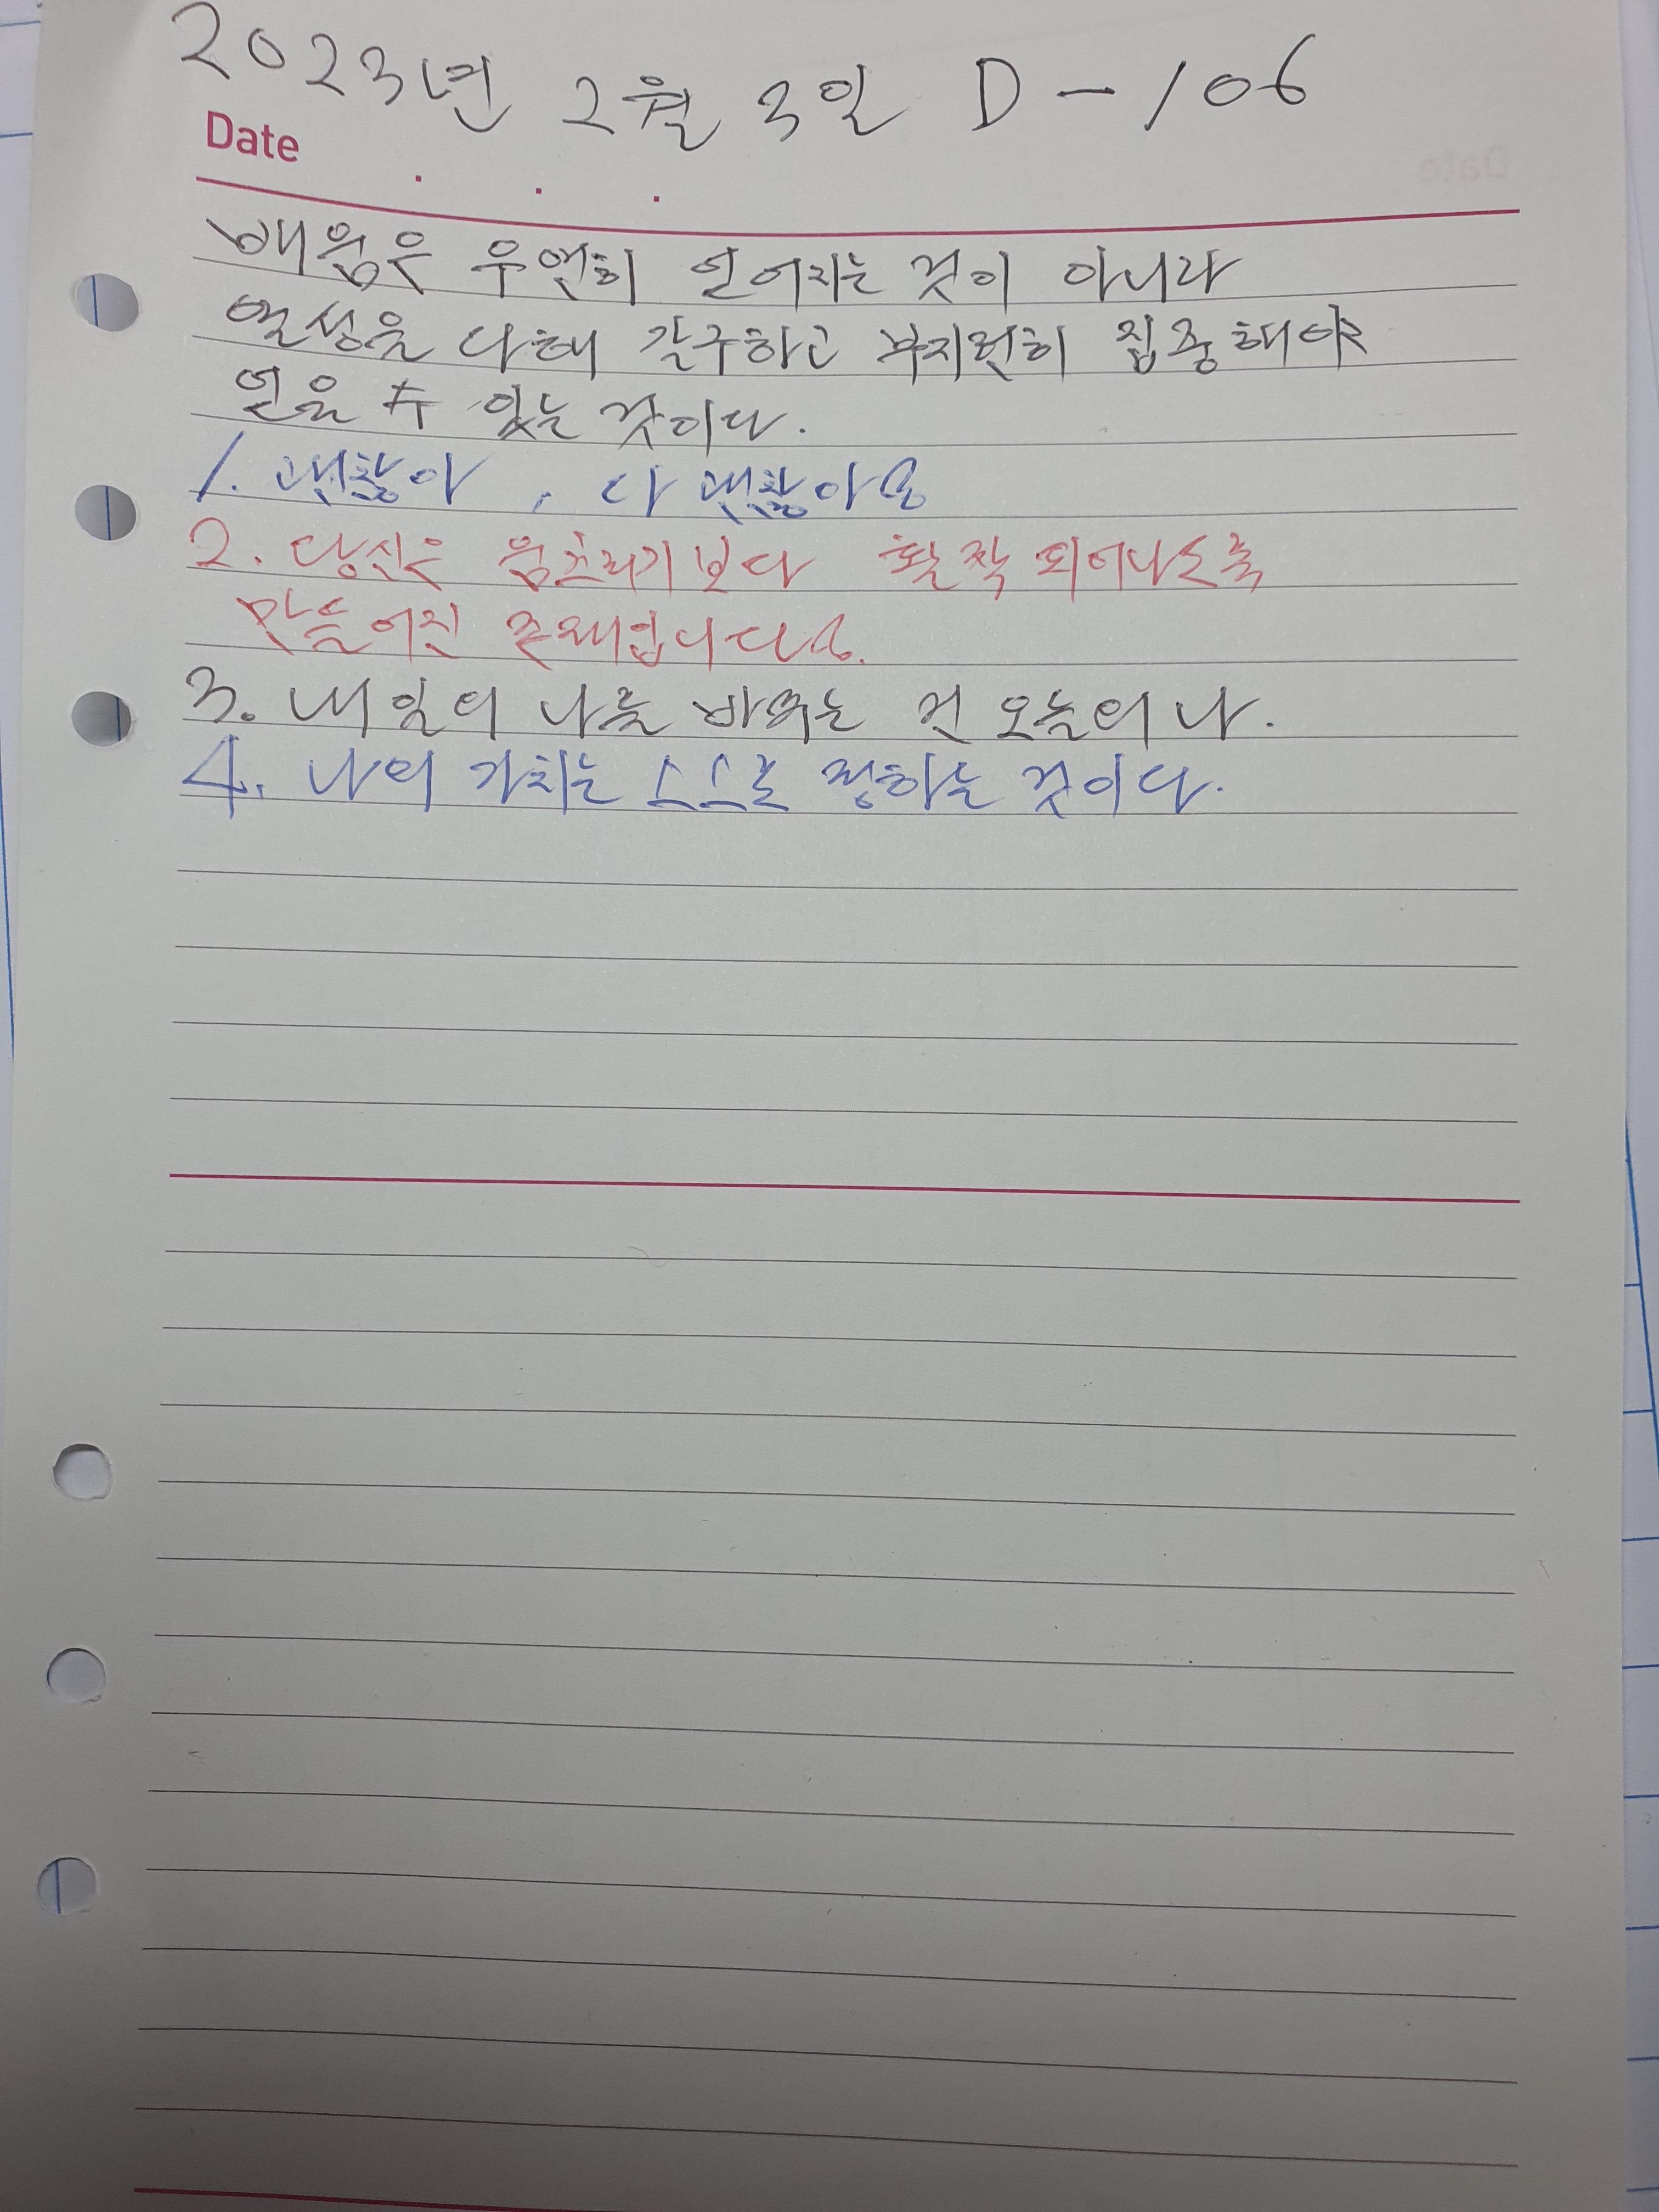 2023년 2월 3일 D-106
Date
배움은 우연히 얻어지는 것이 아니라
열성을 다해 갈구하고 부지런히 집중해야
얻을 수 있는 것이다.
1. 괜찮아, 다 괜찮아
2. 당신은 움츠리기보다 활짝 피어나도록
만들어진 존재입니다.
3. 내일의 나를 바꾸는 건 오늘의 나.
4. 나의 가치는 스스로 정하는 것이다.